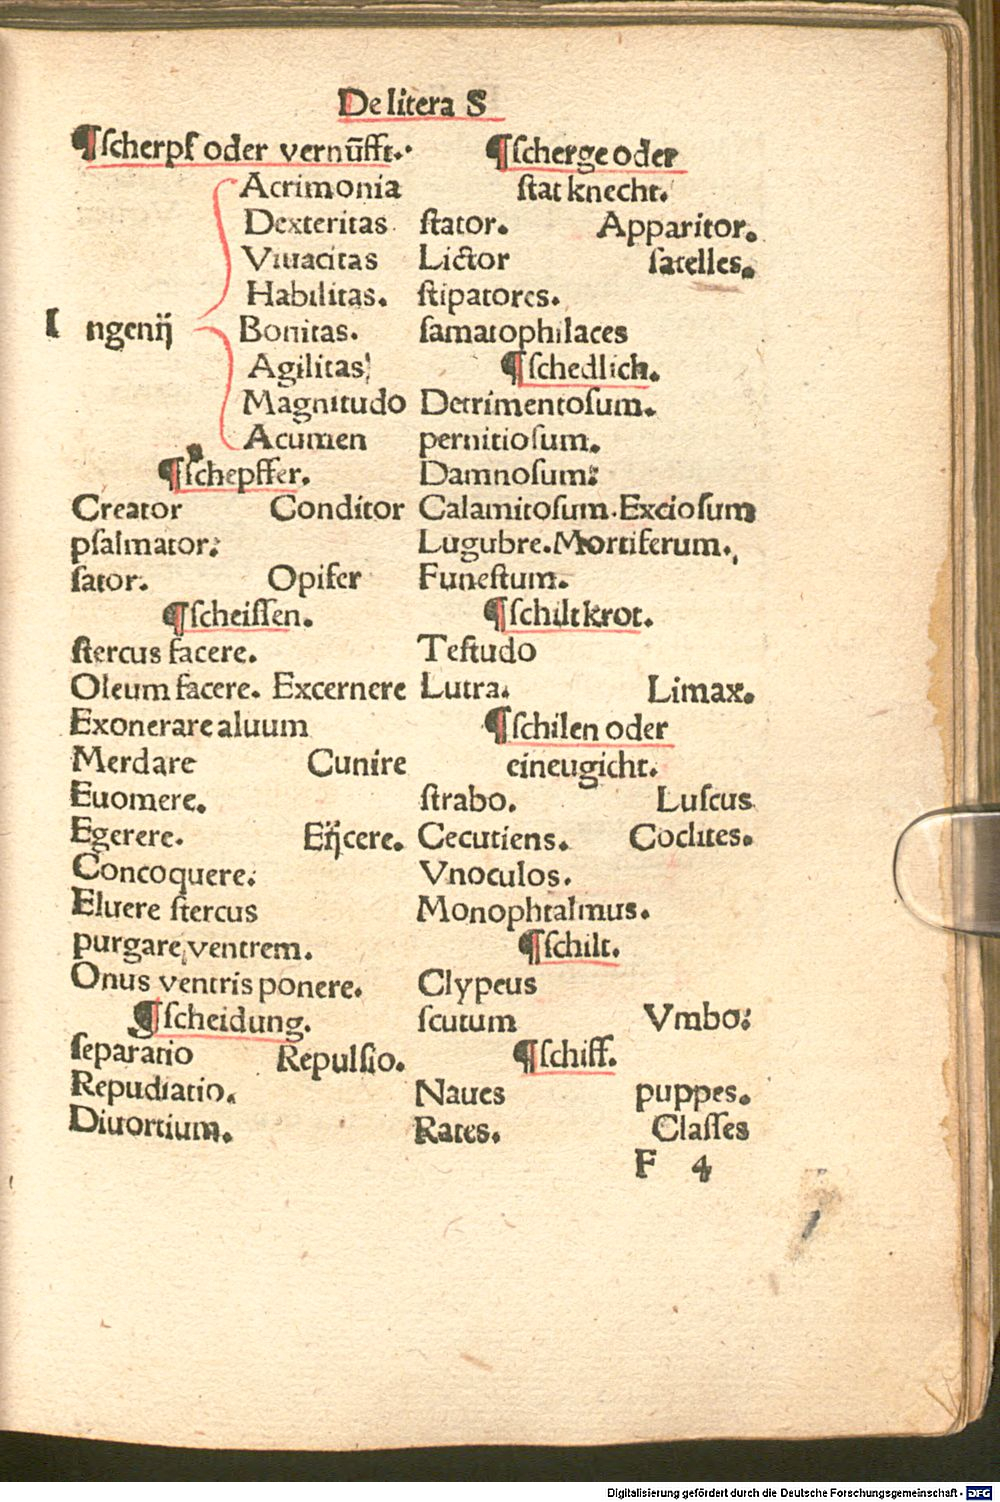 De litera S
¶ſcherpf oder vernūfft.
Acrimonia
Dexteritas
Viuacitas
Habilitas.
I ngenij
Bonitas.
Agilitas
Magnitudo
Acumen
¶ſchepffer.
Creator Conditor
pſalmator.
ſator. Opifer
¶ſcheiſſen.
ſtercus facere.
Oleum facere. Excernere
Exonerare aluum
Merdare Cunire
Euomere.
Egerere. Eijcere.
Concoquere.
Eluere ſtercus
purgare ventrem.
Onus ventris ponere.
¶ſcheidung.
ſeparatio Repulſio.
Repudiatio.
Diuortium.
¶ſcherge oder
ſtat knecht.
ſtator. Apparitor.
Lictor ſatelles.
ſtipatores.
ſamatophilaces
¶ſchedlich.
Detrimentoſum.
pernitioſum.
Damnoſum:
Calamitoſum. Excioſum
Lugubre. Mortiferum.
Funeſtum.
¶ſchiltkrot.
Teſtudo
Lutra. Limax.
¶ſchilen oder
eineugicht.
ſtrabo. Luſcus
Cecutiens. Coclites.
Vnoculos.
Monophtalmus.
¶ſchilt.
Clypeus
ſcutum Vmbo:
¶ſchiff.
Naues puppes.
Rates. Claſſes
F 4
Digitalisierung gefördert durch die Deutsche Forschungsgemeinschaft - DFG